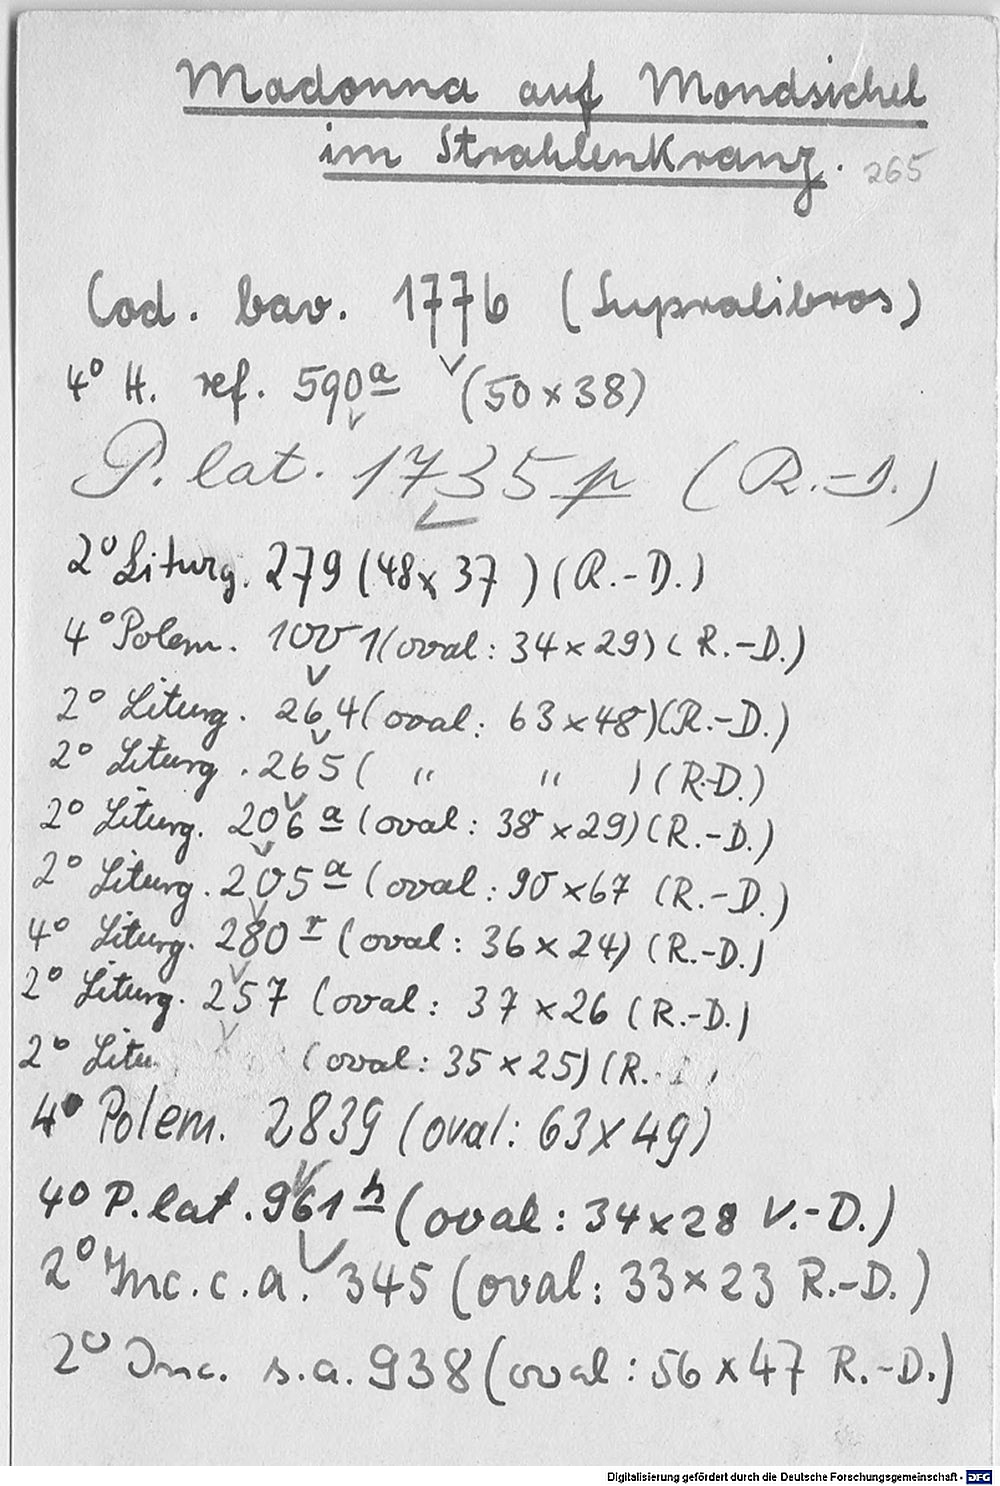 Madonna auf Mondsichel
im Strahlenkranz. 265
Cod. bav. 1776 (Supralibros)
4° H. ref. 590a (50 x 38)
P. lat. 1735p (R.-D.)
2° Liturg. 279 (48 x 37) (R.-D.)
4° Polem. 1001 (oval: 34 x 29) (R.-D.)
2° Liturg. 264 (oval: 63 x 48) (R.-D.)
2° Liturg. 265 ( " " ) (R.-D.)
2° Liturg. 206a (oval: 38 x 29) (R.-D.)
2° Liturg. 205a (oval: 90 x 67 (R.-D.)
4° Liturg. 280r (oval: 36 x 24) (R.-D.)
2° Liturg. 257 (oval: 37 x 26 (R.-D.)
2° Litu (oval: 35 x 25) (R.
4° Polem. 2839 (oval: 63 x 49)
4° P. lat. 961h (oval: 34 x 28 V.-D.)
2° Inc. c. a. 345 (oval: 33 x 23 R.-D.)
2° Inc. s. a. 938 (oval: 56 x 47 R.-D.)
Digitalisierung gefördert durch die Deutsche Forschungsgemeinschaft - DFG